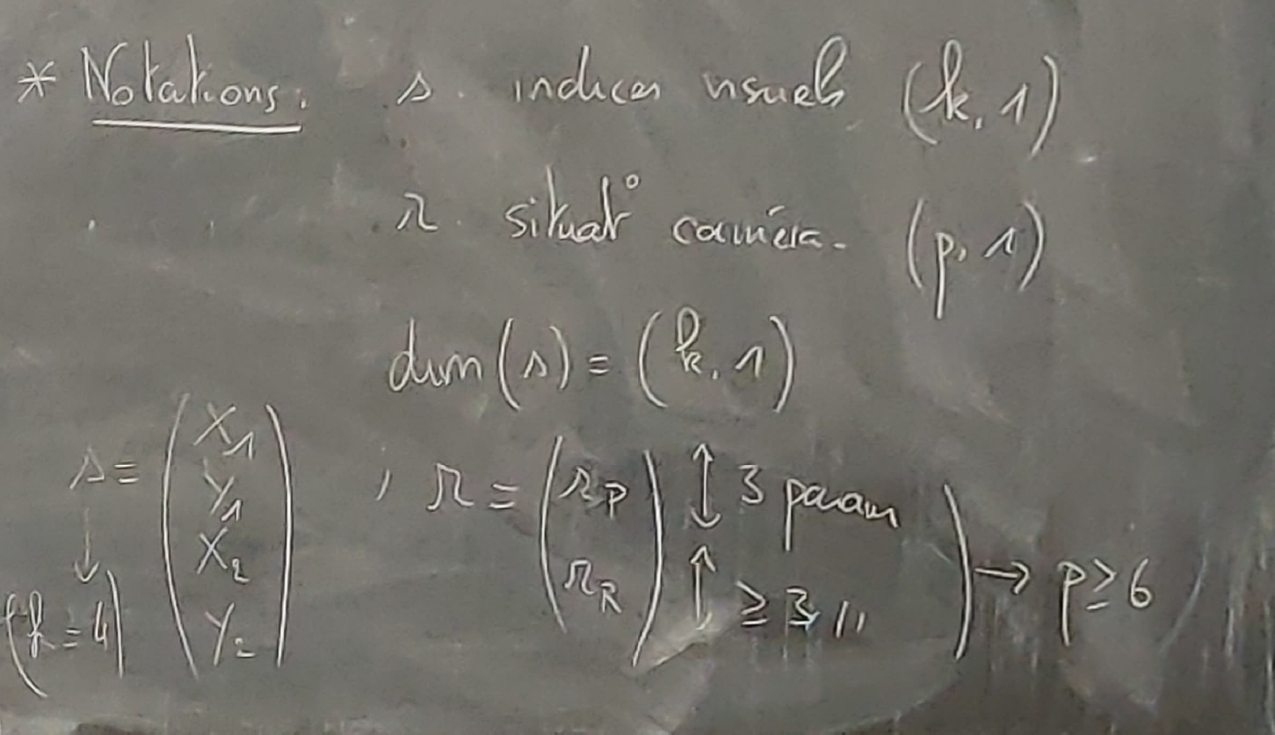 * Notations. s. indices visuels (k, 1)
r. situat° caméra. (p, 1)
dim (s) = (k, 1)
s = (X1 Y1 X2 Y2), r = (rP rR) ↕ 3 param ↕ ≥ 3 // ) → p ≥ 6
↓
(k = 4)